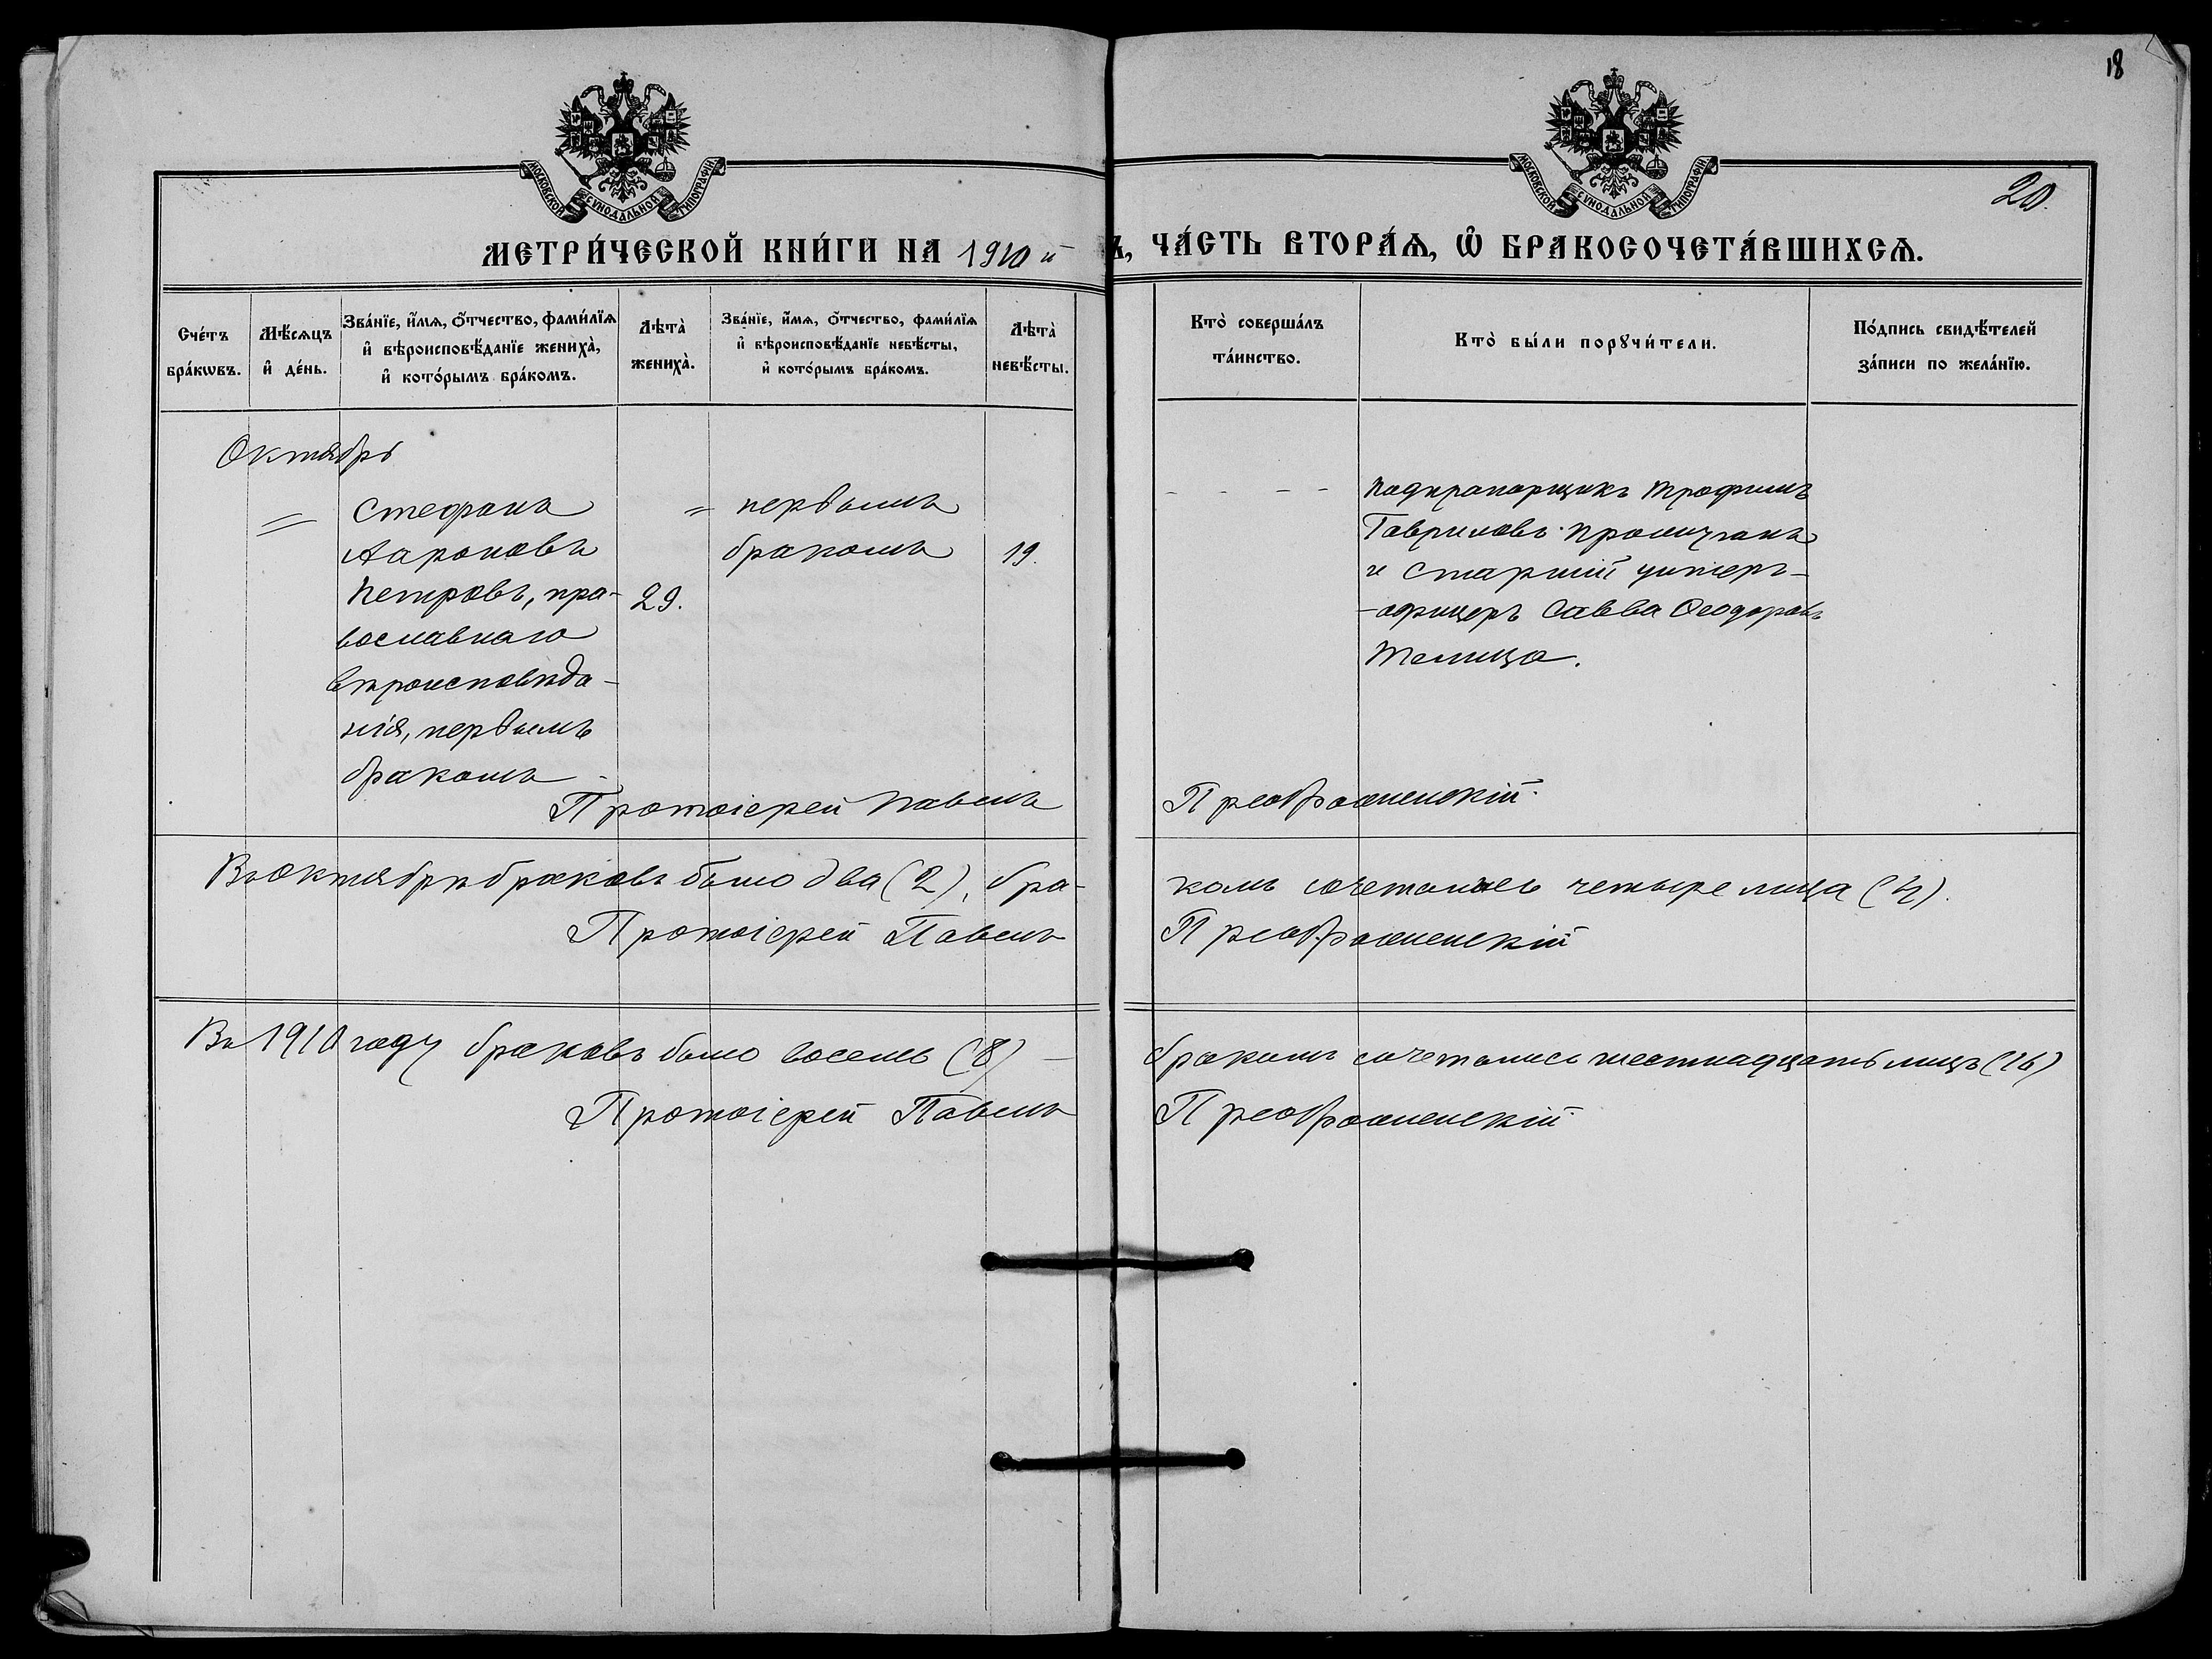 18
МОСКОВСКОЙ СѴНОДАЛЬНОЙ ТИПОГРАФІИ
МОСКОВСКОЙ СѴНОДАЛЬНОЙ ТИПОГРАФІИ
20.
МЕТРИ́ЧЕСКОЙ КНИ́ГИ НА 1910 й
Ъ, ЧА́СТЬ ВТОРА́Ѧ, Ѽ БРАКОСОЧЕТА́ВШИХСѦ.
Сче́тъ бра́кѡвъ.
Мѣ́сѧцъ и҆ де́нь.
Зва́нїе, и҆́мѧ, ѻ҆́тчество, фами́лїѧ
и҆ вѣроисповѣ́данїе жениха̀,
и҆ кото́рымъ бра́комъ.
Лѣта̀ жениха̀.
Зва́нїе, и҆́мѧ, ѻ҆́тчество, фами́лїѧ
и҆ вѣроисповѣ́данїе невѣ́сты,
и҆ кото́рымъ бра́комъ.
Лѣта̀ невѣ́сты.
Кто̀ соверша́лъ
та́инство.
Кто̀ бы́ли порꙋчи́тели.
По́дпись свидѣ́телей
за́писи по жела́нїю.
Октябрь
= Стефанъ
Аароновъ
Петровъ, пра-
вославнаго
вѣроисповѣда-
нія, первымъ
бракомъ
29.
= первымъ
бракомъ
19.
Подпрапорщикъ Трофимъ
Гавриловъ
и Старшій унтеръ-
-офицеръ Савва Ѳеодоровъ
Телица.
Протоіерей Павелъ Преображенскій.
Въ октябрѣ браковъ было два (2), бра-
комъ сочеталось четыре лица (4).
Протоіерей Павелъ Преображенскій
Въ 1910 году браковъ было восемь (8) — бракомъ сочетались шестнадцать лицъ (16)
Протоіерей Павелъ Преображенскій